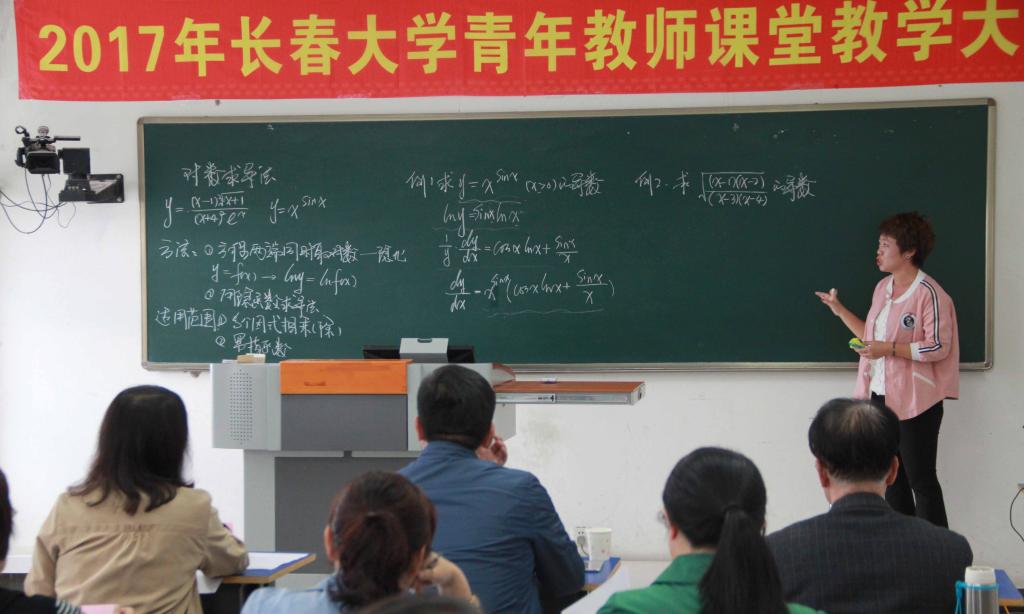 2017年长春大学青年教师课堂教学大
对数求导法
y=(x-1)∛(x+1)/((x+4)²eˣ) y=x^sinx
方法：① 方程两端同时取对数—隐化
y=f(x)→lny=lnf(x)
② 用隐函数求导法
适用范围 ① 多个因式相乘(除)
② 幂指函数
例1 求 y=x^sinx (x>0)的导数
lny=sinx lnx
1/y·dy/dx=cosx lnx+sinx/x
dy/dx=x^sinx(cosx lnx+sinx/x)
例2. 求 √((x-1)(x-2)/((x-3)(x-4))) 的导数